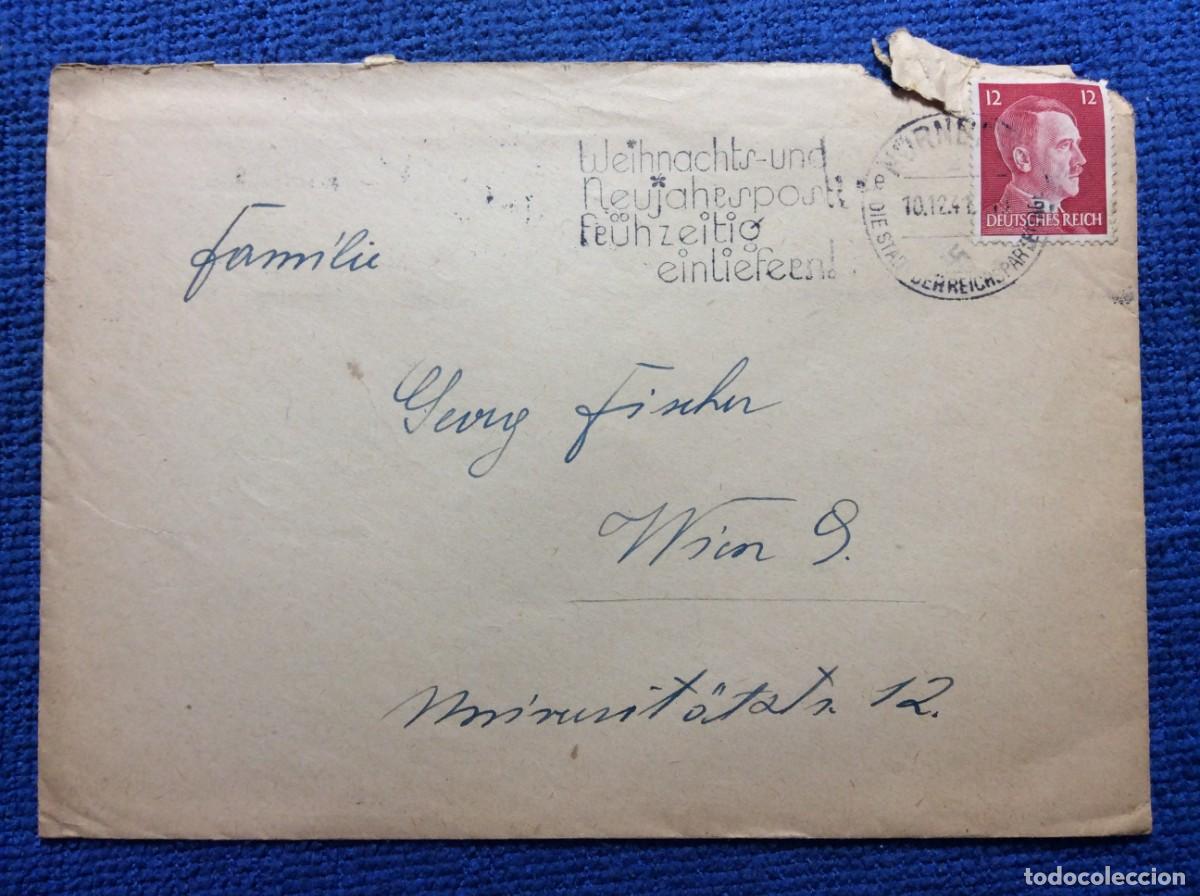 Weihnachts-und
Neujahrspost
frühzeitig
einliefern!
NÜRNBE
10.12.41
DIE STADT DER REICHSPARTEITAG
12 12
DEUTSCHES REICH
Familie
Georg Fischer
Wien 9.
Universitätstr. 12.
todocoleccion